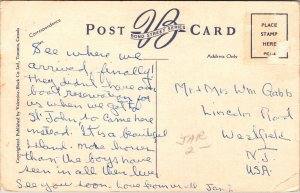 Correspondence
POST CARD
VB
BOND STREET SERIES
Address Only
PLACE
STAMP
HERE
Copyrighted, Published by Valentine-Black Co. Ltd., Toronto, Canada
See where we
arrived, finally!
they didn't have our
boat reservations for
us when we got to
St John, so came here
instead. It is a beautiful
island. More horses
than the boys have
seen in all their lives
See you soon. Love from us all Jan.
Mr & Mrs Wm Gabb
Lincoln Road
Westfield
N.J.
USA.